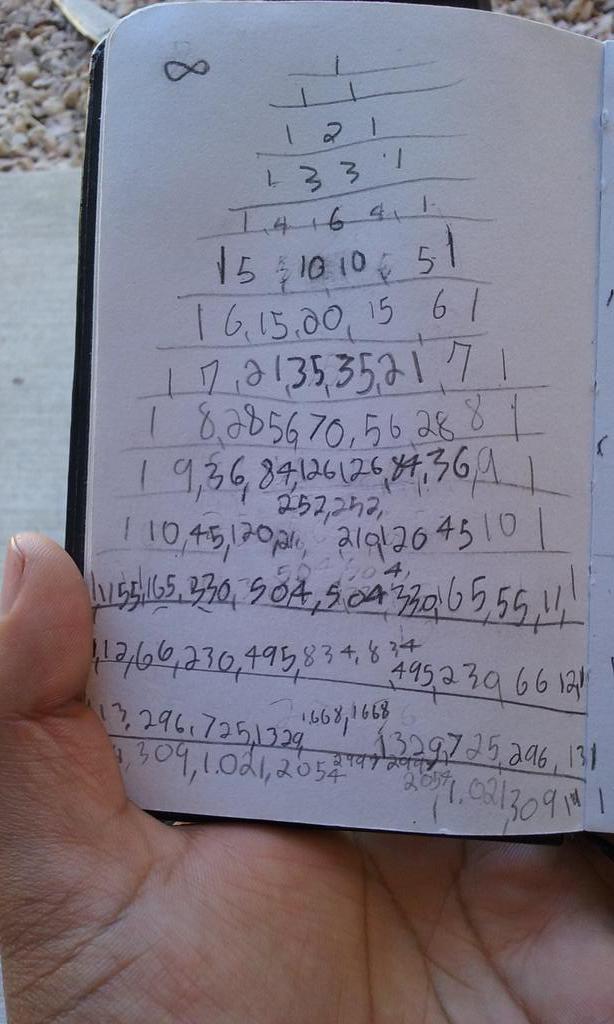 ∞
1
1 1
1 2 1
1 3 3 1
1 4 6 4 1
1 5 10 10 5 1
1 6,15,20, 15 6 1
1 7,21,35,35,21,7 1
1 8,28 56 70,56 28 8 1
1 9,36,84,126,126,84,36,9 1
252,252,
1 10,45,120,210, 210,120 45 10 1
1,11 55,165,330,504,504,330,165,55,11,1
1,12,66,230,495,834,834
495,239 66 12,1
13,296,725,1329 1,668,1668 1329,725,296,13 1
309,1.021,2054 2997 2997 2054 1.021,309 14 1